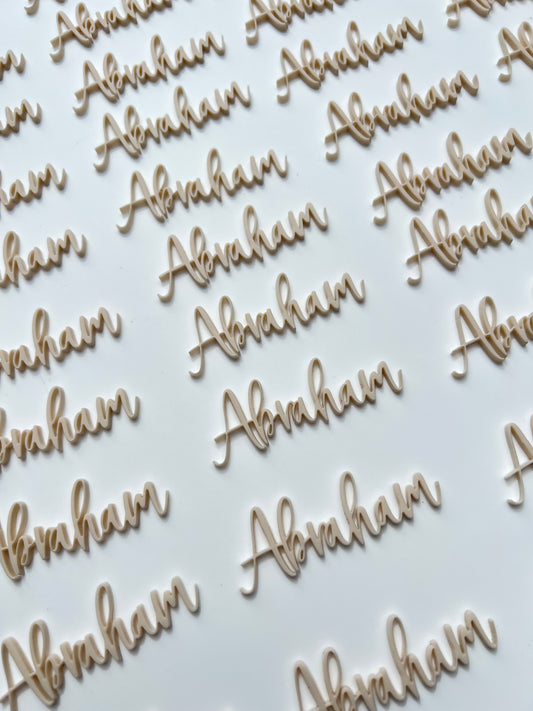 Abraham
Abraham
Abraham
Abraham
Abraham
Abraham
Abraham
Abraham
Abraham
Abraham
Abraham
Abraham
Abraham
Abraham
Abraham
Abraham